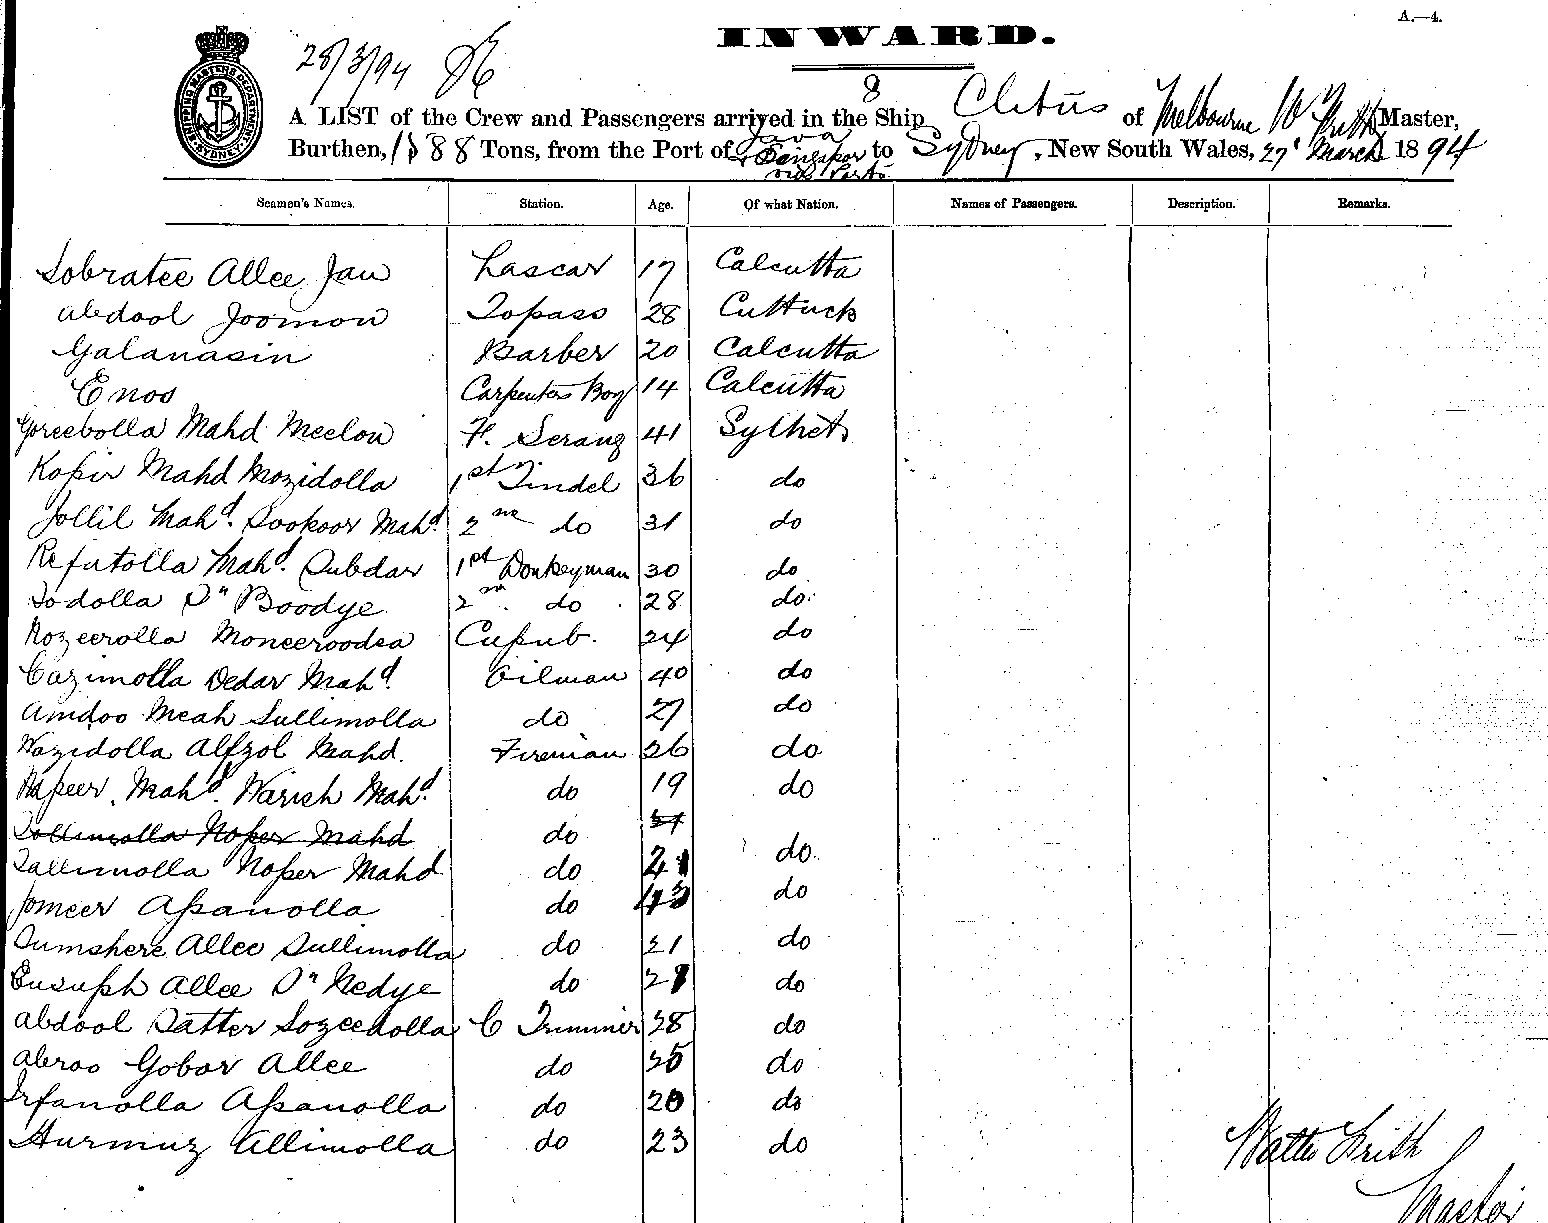 A.—4.
INWARD.
28/3/94
SHIPPING MASTERS DEPARTMENT SYDNEY
8
A LIST of the Crew and Passengers arrived in the Ship Clitus of Melbourne W Frith Master,
Burthen, Tons, from the Port of Java & Singapor via Ports to Sydney, New South Wales, 27 March 1894
Seamen's Names. Station. Age. Of what Nation. Names of Passengers. Description. Remarks.
Sobratee Allee Jan Lascar 17 Calcutta
Abdool Joomon Topass 28 Cuttuck
Galanasin Barber 20 Calcutta
Enos Carpenters Boy 14 Calcutta
Goreebolla Mahd Meelon F. Serang 41 Sylhet
Kopir Mahd Mozidolla 1st Tindel 36 do
Jollil Mahd. Sookoor Mahd. 2nd do 31 do
Refutolla Mahd. Subdar 1st Donkeyman 30 do
Sodolla Sn Boodye 2nd do 28 do
Rozeerolla Moneeroodea Cupub. 24 do
Cazimolla Dedar Mahd. Oilman 40 do
Amdoo Meah Sullimolla do 27 do
Wazidolla Alfzol Mahd. Fireman 26 do
Napeer Mahd. Warish Mahd. do 19 do
Tallimolla Noper Mahd do
Tallimolla Noper Mahd do 21 do
Jomeer Asanolla do 43 do
Sumshere Allee Sullimolla do 21 do
Eusuph Allee Sn Nedye do 28 do
Abdool Satter Sozeedolla C Trimmer 28 do
Abroo Gobar Allee do 25 do
Irfanolla Asanolla do 20 do
Hurmuz Allimolla do 23 do
Walter Frith
Master